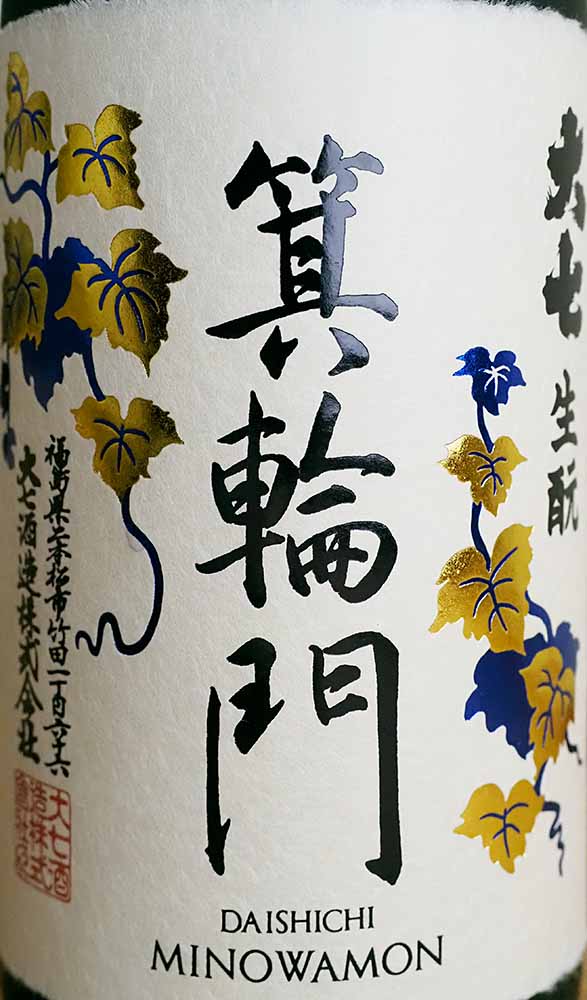 大七 生酛
箕輪門
福島県二本松市竹田一丁目六十六
大七酒造株式会社
大七酒
造株式
DAISHICHI
MINOWAMON